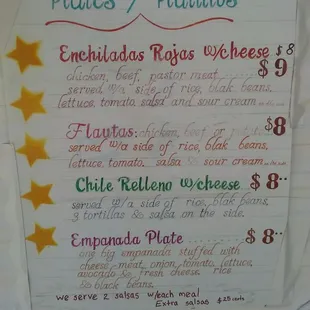 Plates / Platillos
Enchiladas Rojas w/cheese $8
chicken, beef, pastor meat $9
served w/a side of rice, blak beans,
lettuce, tomato, salsa and sour cream
Flautas: chicken, beef or $8
served w/a side of rice, blak beans,
lettuce, tomato, salsa & sour cream
Chile Relleno w/cheese $8
served w/a side of rice, blak beans,
3 tortillas & salsa on the side.
Empanada Plate $8
one big empanada stuffed with
cheese, meat, onion, tomato, lettuce,
avocado & fresh cheese, rice
& black beans.
we serve 2 salsas w/each meal
Extra salsas $.25 cents